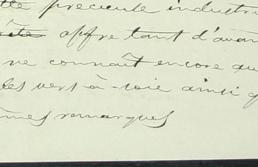 précieuse industri
offre tant d'avan
ne connaît encore au
les vers à-soie ainsi q
mes remarques